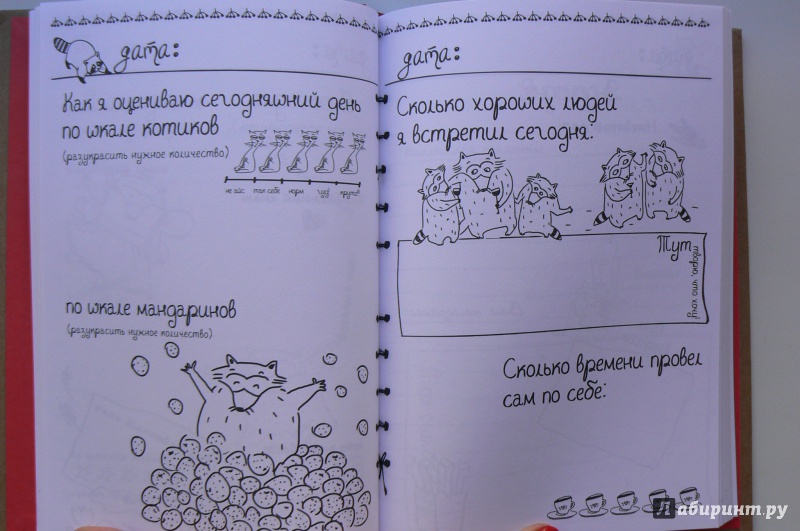 дата:
Как я оцениваю сегодняшний день
по шкале котиков
(разукрасить нужное количество)
не айс так себе норм чудо круто!
по шкале мандаринов
(разукрасить нужное количество)
дата:
Сколько хороших людей
я встретил сегодня:
Тут
творю, что хочу
Сколько времени провел
сам по себе:
Лабиринт.ру